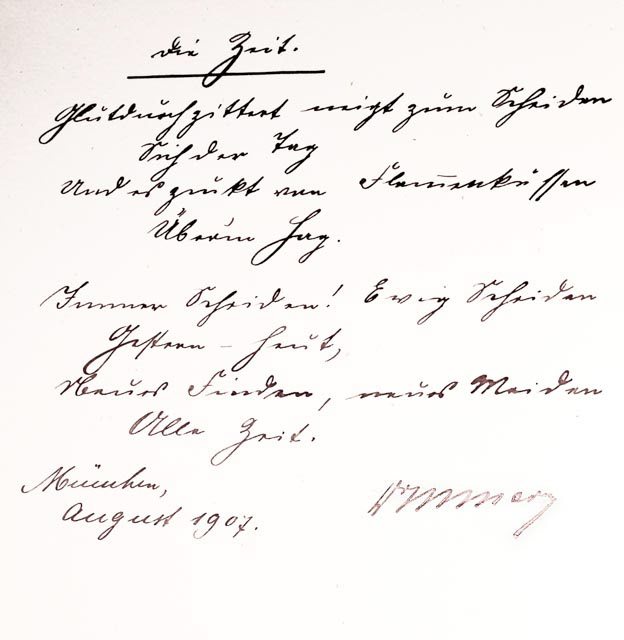 Die Zeit.
Glutdurchzittert neigt zum Scheiden
Sich der Tag
Und es zuckt von Flammenküssen
Über'm Hag.
Immer Scheiden! Ewig Scheiden
Gestern – heut,
Neues Finden, neues Meiden
Alle Zeit.
München,
August 1907.